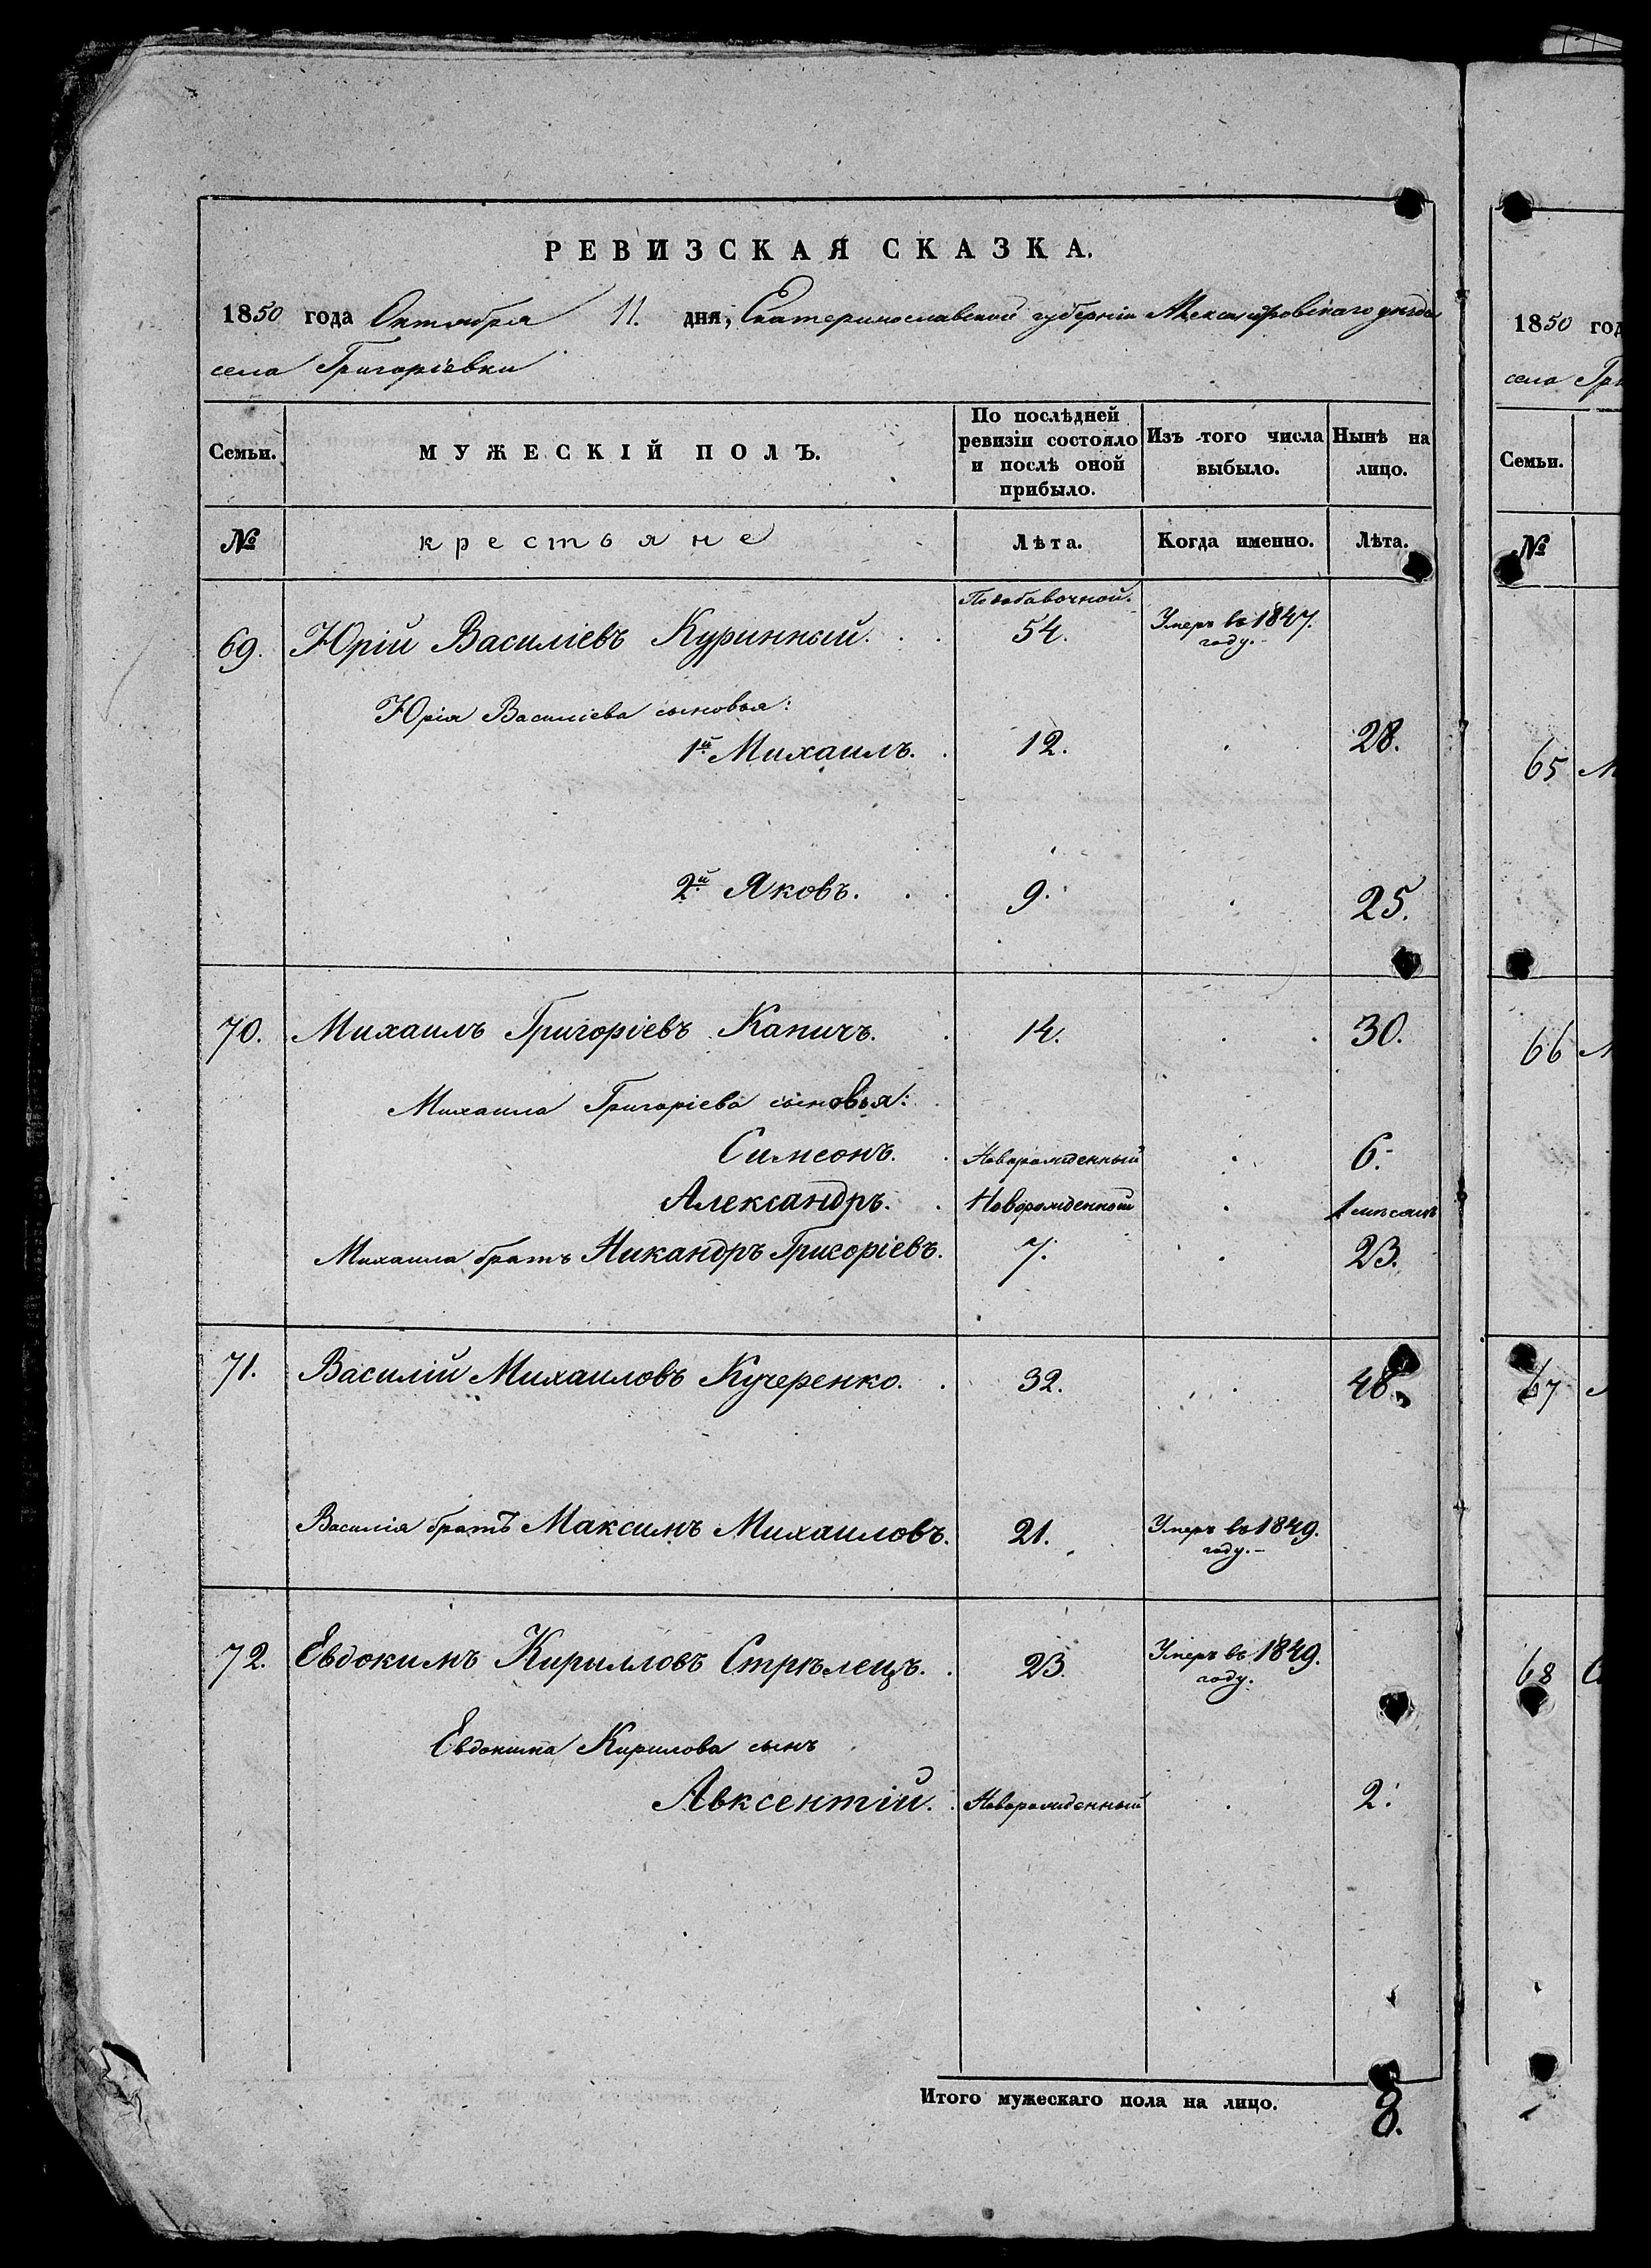 РЕВИЗСКАЯ СКАЗКА.
1850 года Октября 11. дня, Екатеринославской губерніи Александровскаго уѣзда
села Григоріевки
Семьи.
МУЖЕСКІЙ ПОЛЪ.
По послѣдней ревизіи состояло и послѣ оной прибыло.
Изъ того числа выбыло.
Нынѣ на лицо.
№ крестьяне Лѣта. Когда именно. Лѣта.
По добавочной.
69. Юрій Василіевъ Куринный. 54. Умеръ въ 1847. году.
Юрія Василіева сыновья:
1й Михаилъ. 12. 28.
2й Яковъ. 9. 25.
70. Михаилъ Григоріевъ Капичъ. 14. 30.
Михаила Григоріева сыновья:
Симеонъ. Новорожденный 6.
Александръ. Новорожденный 1 мѣсяцъ
Михаила братъ Никандръ Григоріевъ. 7. 23.
71. Василій Михаиловъ Кучеренко. 32. 48.
Василія братъ Максимъ Михаиловъ. 21. Умеръ въ 1849. году.
72. Евдокимъ Кирилловъ Стрѣлецъ. 23. Умеръ въ 1849. году.
Евдокима Кирилова сынъ
Авксентій. Новорожденный 2.
Итого мужескаго пола на лицо. 8.
1850 год
села Гри
Семьи.
№
65 М
66
67
68